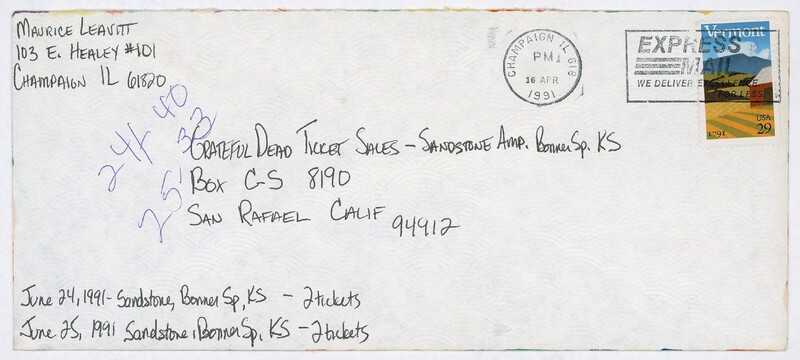 MAURICE LEAVITT
103 E. HEALEY #101
CHAMPAIGN IL 61820
CHAMPAIGN IL 618
PM
16 APR
1991
EXPRESS
MAIL
WE DELIVER EXCELLENCE
FOR LESS
Vermont
1791
USA
29
24/ 40
25 33
GRATEFUL DEAD TICKET SALES - SANDSTONE AMP. Bonner Sp. KS
BOX C-S 8190
SAN RAFAEL CALIF 94912
June 24, 1991 - Sandstone, Bonner Sp, KS - 2 tickets
June 25, 1991 Sandstone, Bonner Sp, KS - 2 tickets